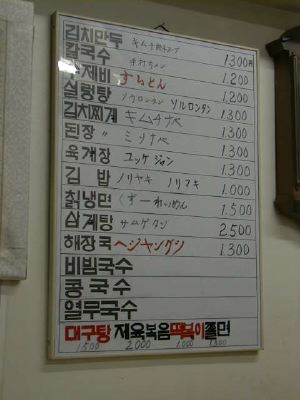 김치만두 キムチ
칼국수 手打ちメン 1300円
수제비 すいとん 1.200
설렁탕 ソウロンタン ソルロンタン 1.200
김치찌개 キムチナベ 1300
된장 〃 ミソナベ 1.300
육개장 ユッケジャン 1.300
김밥 ノリヤキ ノリマキ 1.000
칡냉면 1.500
삼계탕 サムゲタン 2500
해장국 ヘジャングク 1.300
비빔국수
콩국수
열무국수
대구탕 제육볶음 떡볶이 쫄면
1500 2000 1.000 1300